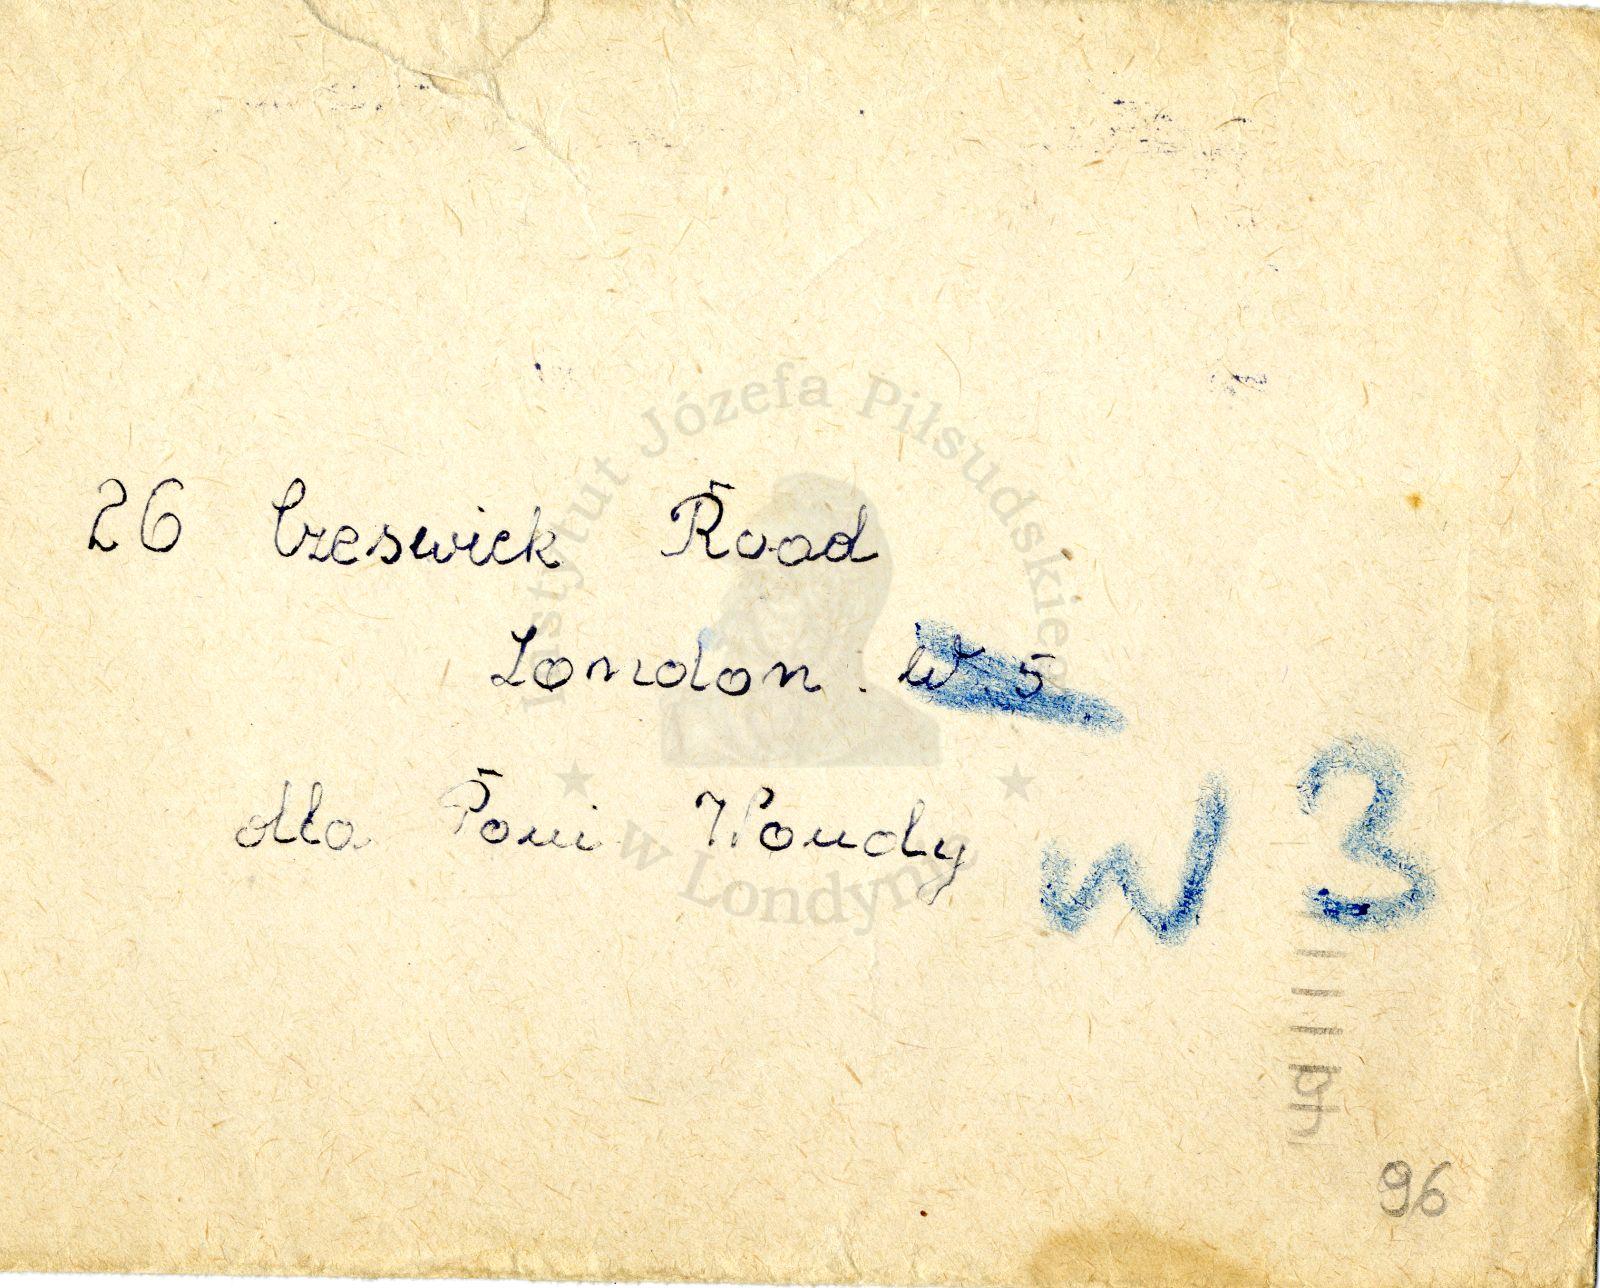 26 Czeswick Road
London. W. 5
dla Pani Wandy
W 3
96
Instytut Józefa Piłsudskiego
w Londynie